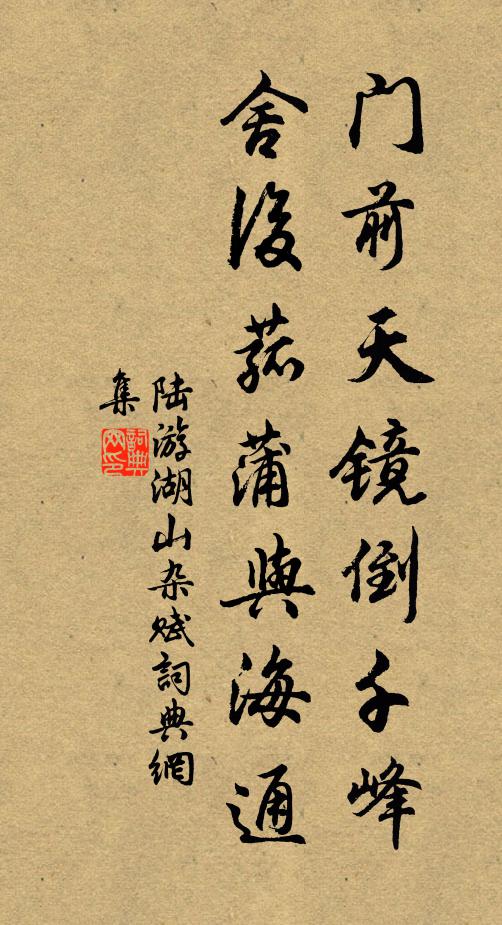 门前天镜倒千峰
舍後菰蒲與海通
陆游湖山杂赋詞典網
集
詞典網印